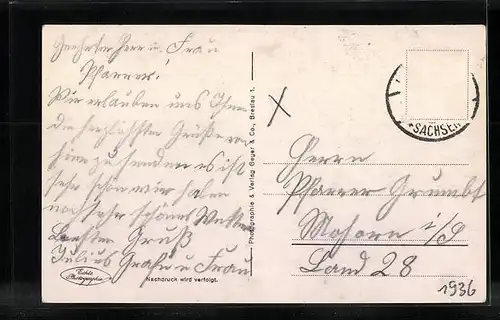 Geehrter Herr u. Frau
Pfarrer!
Wir erlauben uns Ihnen
die herzlichsten Grüße von
hier zu senden es ist
sehr schön wir haben
noch sehr schönes Wetter
Besten Gruß
Julius Grafu u Frau
Echte
Photographie
Nachdruck wird verfolgt.
Photographie u. Verlag Geyer & Co., Breslau 1.
X
SACHSEN
Herrn
Pfarrer Grumbt
Mohorn i/S
Land 28
1936